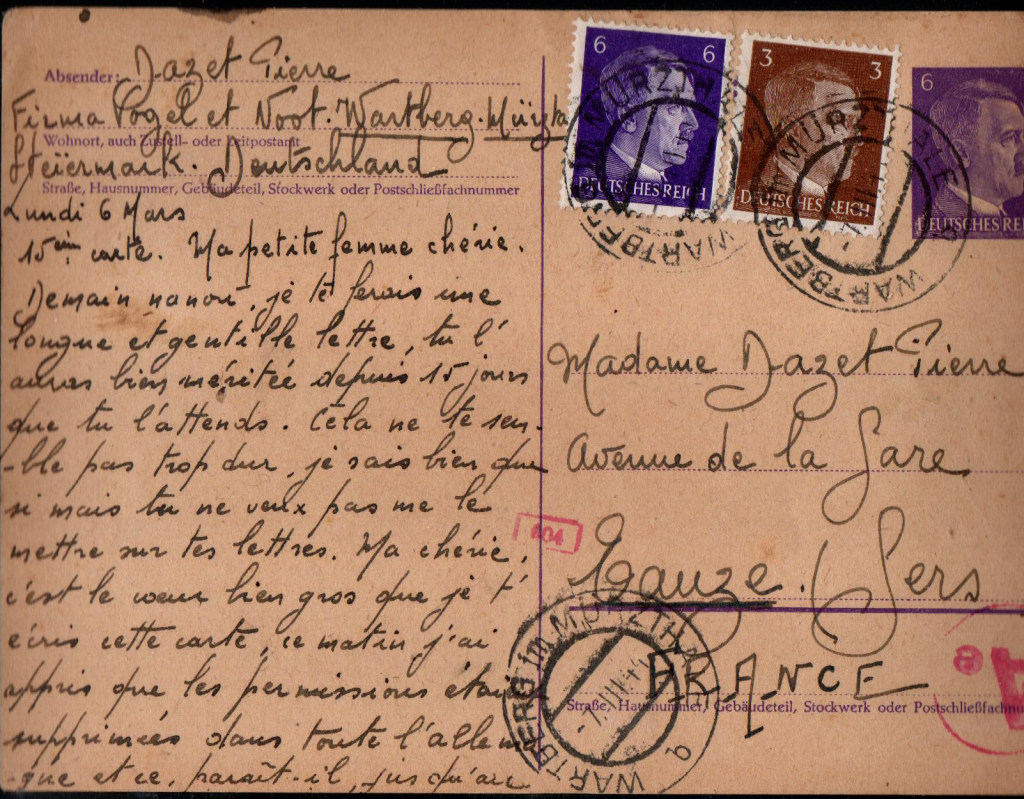 Absender: Dazet Pierre
Firma Vogel et Noot. Wartberg. Mürzta
Wohnort, auch Zustell- oder Leitpostamt
Steiermark. Deutschland
Straße, Hausnummer, Gebäudeteil, Stockwerk oder Postschließfachnummer
Lundi 6 Mars
15 em carte. Ma petite femme chérie.
Demain nanou, je te ferais une
longue et gentille lettre, tu l'
auras bien méritée depuis 15 jours
que tu l'attends. Cela ne te sem-
-ble pas trop dur, je sais bien que
si mais tu ne veux pas me le
mettre sur tes lettres. Ma chérie,
c'est le coeur bien gros que je t'
écris cette carte, ce matin j'ai
appris que les permissions étaient
supprimées dans toute l'allema
-gne et ce, paraît-il, jusqu'au
6 6
DEUTSCHES REICH
3 3
DEUTSCHES REICH
6
DEUTSCHES REI
WARTBERG im MÜRZTHALE
WARTBERG im MÜRZTHALE b
Madame Dazet Pierre
Avenue de la Gare
604
Eauze. Gers
FRANCE
Straße, Hausnummer, Gebäudeteil, Stockwerk oder Postschließfachnu
WARTBERG im MÜRZTHA b
A
e